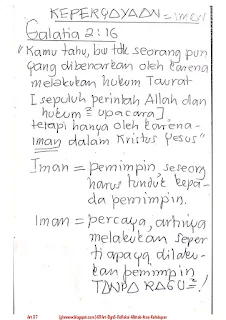 KEPERCAYAAN = iman
Galatia 2:16
"Kamu tahu, bw tdk seorang pun
yang dibenarkan oleh karena
melakukan hukum Taurat
[sepuluh perintah Allah dan
hukum² upacara]
tetapi hanya oleh karena-
iman dalam Kristus Yesus"
Iman = pemimpin, seseorg
harus tunduk kepa-
da pemimpin.
Iman = percaya, artinya
melakukan seper
ti apa yg dilaku-
kan pemimpin
TANPA RAGU²!
Art 07